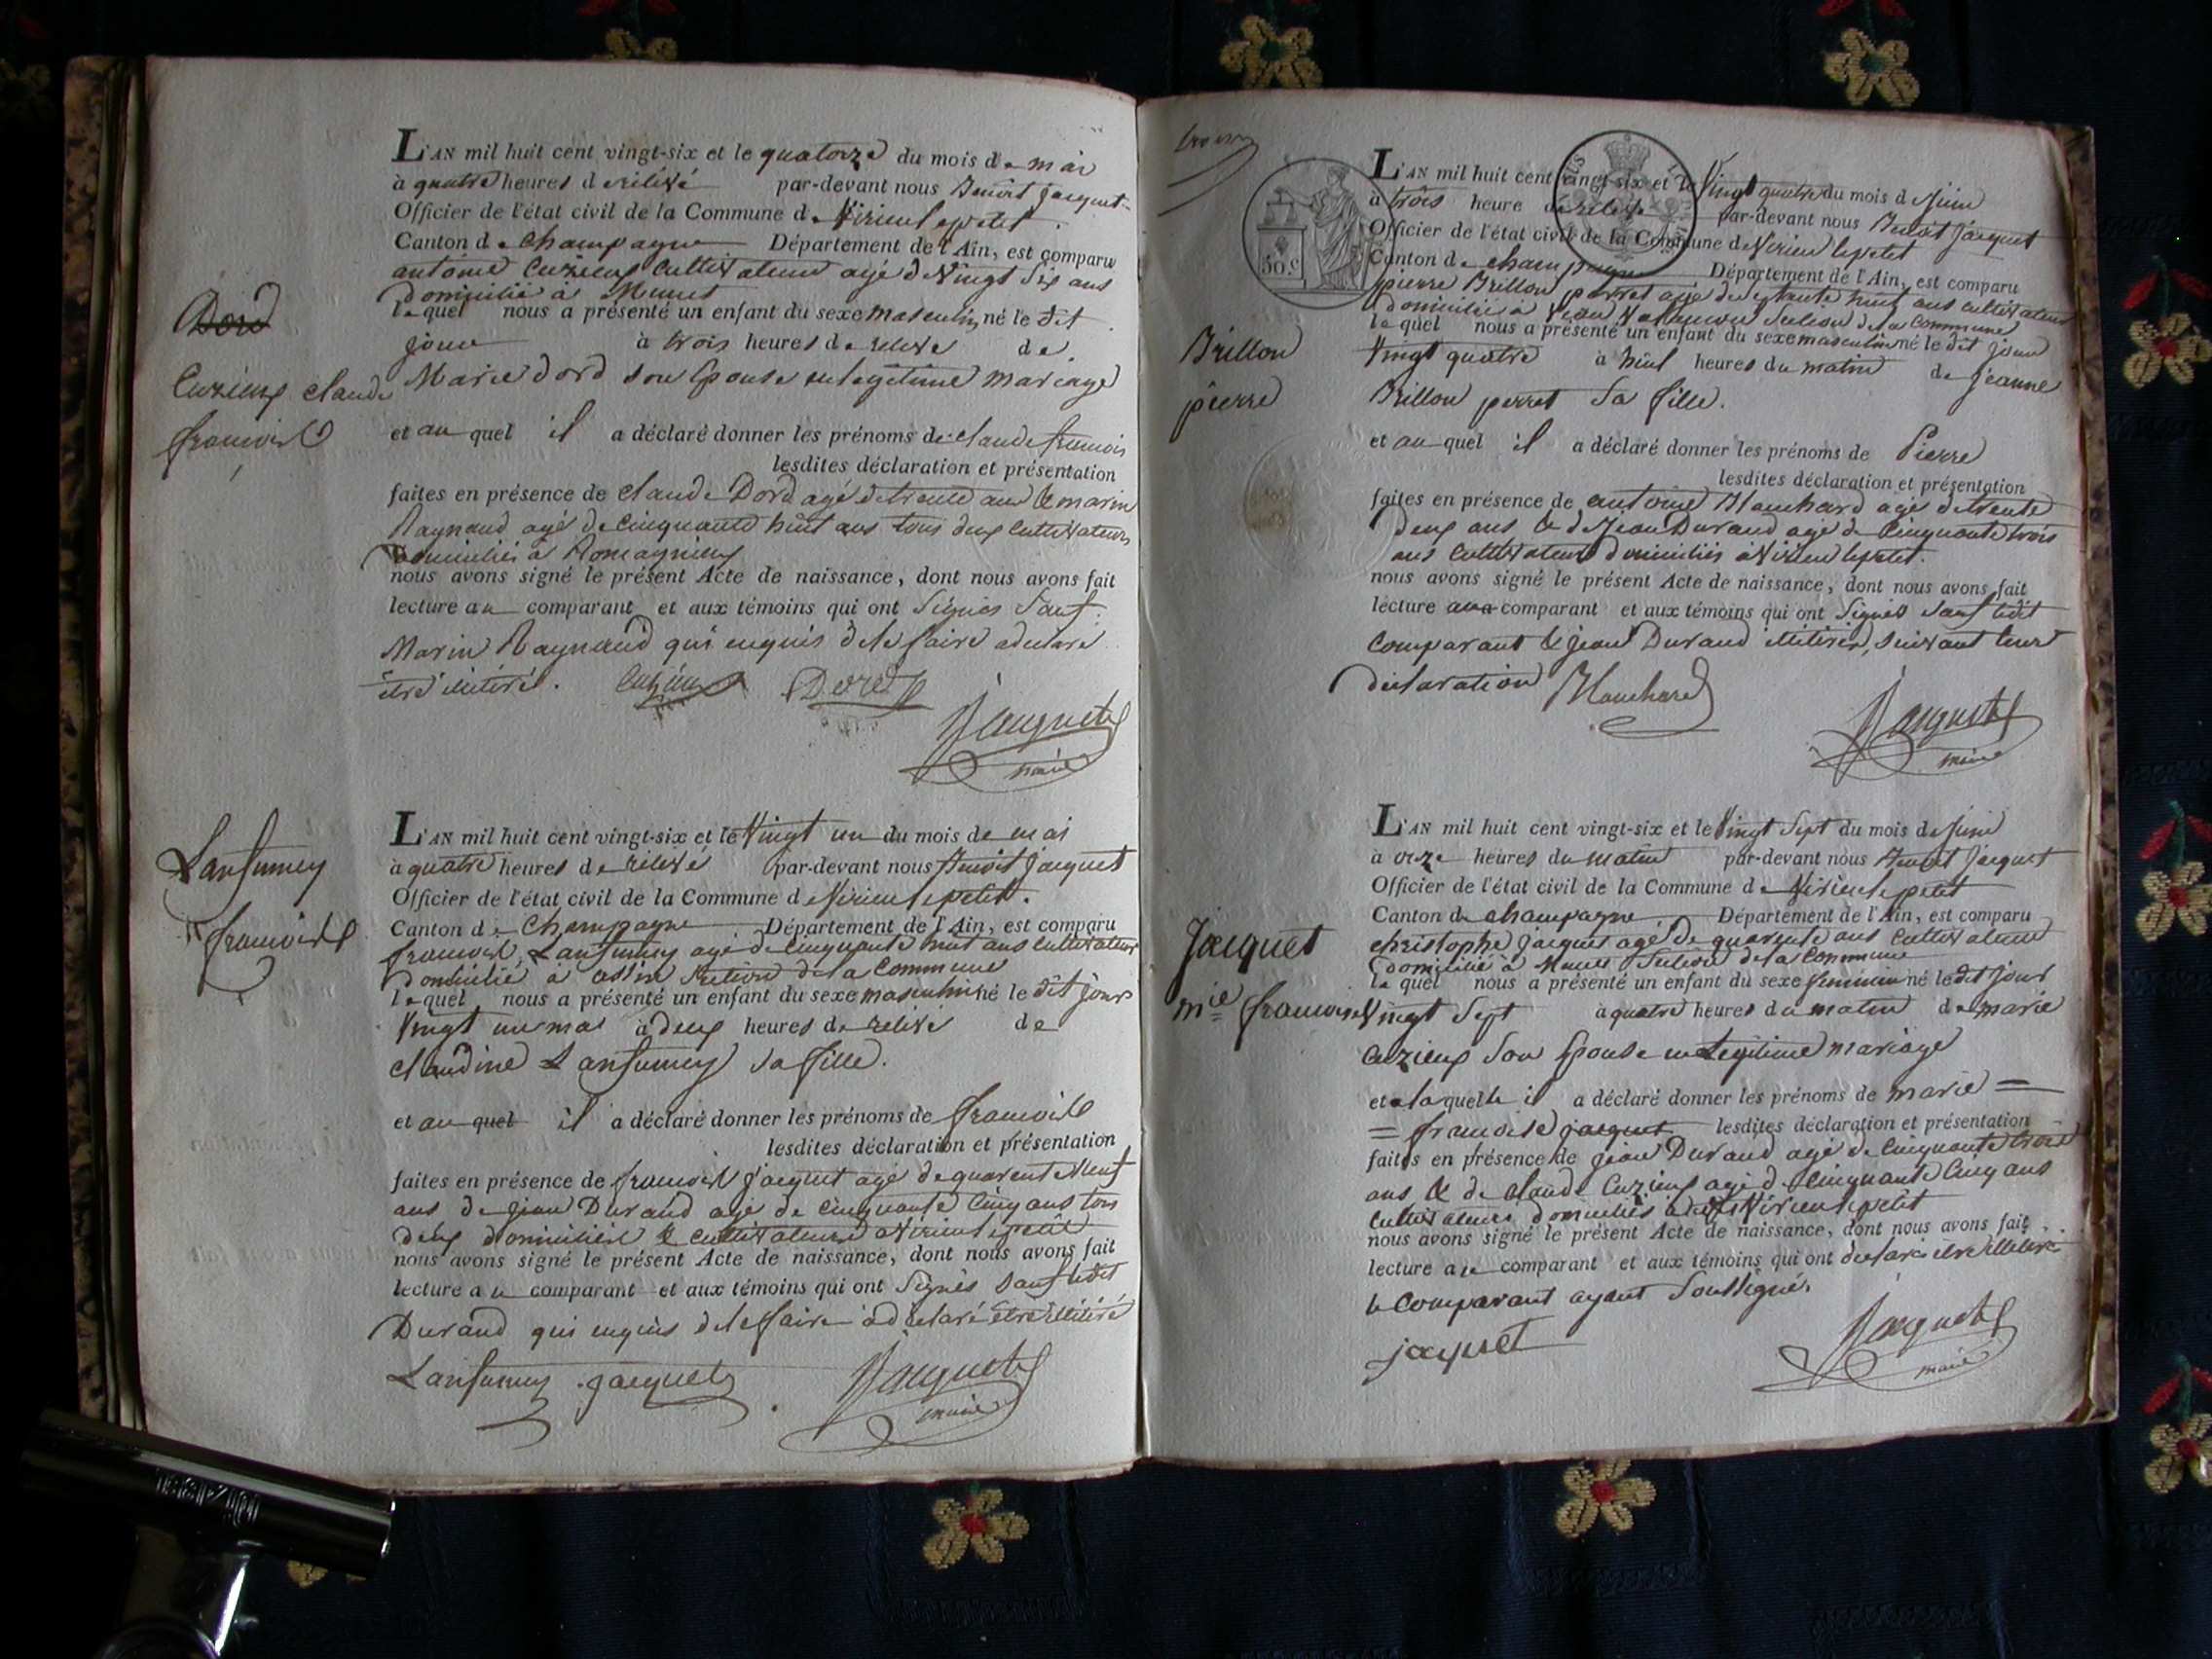 Dord
Cuzieux claude
francois
L'AN mil huit cent vingt-six et le quatorze du mois de mai
à quatre heures de relevé par-devant nous Benoit Jacquet
Officier de l'état civil de la Commune de Virieu le petit
Canton de Champagne Département de l'Ain, est comparu
antoine Cuzieux Cultivateur agé de Vingt Six ans
domicilié à Munet
lequel nous a présenté un enfant du sexe masculin né le dit
jour à trois heures de relevé de
Marie Dord son Epouse en legitime mariage
et au quel il a déclaré donner les prénoms de claude francois
lesdites déclaration et présentation
faites en présence de claude Dord agé de trente ans & marin
Raynaud agé de Cinquante huit ans tous deux Cultivateurs
Domiciliés à Romagnieux
nous avons signé le présent Acte de naissance, dont nous avons fait
lecture au comparant et aux témoins qui ont Signés Sauf
Marin Raynaud qui enquis de le faire a declaré
être illitéré. Cuzieux Dord
Jacquet
maire
Lansumey
francois
L'AN mil huit cent vingt-six et le Vingt un du mois de mai
à quatre heures de relevé par-devant nous Benoit Jacquet
Officier de l'état civil de la Commune de Virieu le petit.
Canton de Champagne Département de l'Ain, est comparu
francois Lansumey agé de Cinquante huit ans cultivateur
domicilié à assin Section de la Commune
lequel nous a présenté un enfant du sexe masculin né le dit jour
Vingt un mai à deux heures de relevé de
claudine Lansumey sa fille.
et au quel il a déclaré donner les prénoms de francois
lesdites déclaration et présentation
faites en présence de francois Jacquet agé de quarente Neuf
ans de jean Durand agé de Cinquante Cinq ans tous
deux domiciliés & cultivateurs a Virieu le petit
nous avons signé le présent Acte de naissance, dont nous avons fait
lecture au comparant et aux témoins qui ont Signés Sauf ledit
Durand qui enquis de le faire a declaré être illitéré
Lansumey jacquet Jacquet
maire
50.c
Brillon
pierre
L'AN mil huit cent vingt-six et le Vingt quatre du mois de Juin
à trois heure de relevé par-devant nous Benoit Jacquet
Officier de l'état civil de la Commune de Virieu le petit
Canton de champagne Département de l'Ain, est comparu
pierre Brillon perret agé de Septante huit ans cultivateur
domicilié à Section de la Commune
lequel nous a présenté un enfant du sexe masculin né le dit jour
Vingt quatre à huit heures du matin de jeanne
Brillon perret Sa fille.
et au quel il a déclaré donner les prénoms de Pierre
lesdites déclaration et présentation
faites en présence de antoine Blanchard agé de trente
deux ans & de Jean Durand agé de Cinquante trois
ans Cultivateurs domiciliés à Virieu le petit.
nous avons signé le présent Acte de naissance, dont nous avons fait
lecture au comparant et aux témoins qui ont Signés Sauf ledit
Comparant & jean Durand illiterés, suivant leur
declaration Blanchard
Jacquet
maire
Jacquet
mie francoise
L'AN mil huit cent vingt-six et le Vingt Sept du mois de Juin
à onze heures du matin par-devant nous Benoit Jacquet
Officier de l'état civil de la Commune de Virieu le petit
Canton de champagne Département de l'Ain, est comparu
christophe jacquet agé de quarente ans Cultivateur
domicilié à Munet Section de la Commune
lequel nous a présenté un enfant du sexe feminin né le dit jour
Vingt Sept à quatre heures du matin de marie
Cuzieux Son Epouse en Legitime mariage
et a laquelle il a déclaré donner les prénoms de marie =
= francoise jacquet lesdites déclaration et présentation
faites en présence de jean Durand agé de Cinquante trois
ans & de claude Cuzieux agé de Cinquante Cinq ans
Cultivateurs domiciliés à Virieu le petit
nous avons signé le présent Acte de naissance, dont nous avons fait
lecture au comparant et aux témoins qui ont declarés être illiterés
le Comparant ayant Soussigné.
jacquet
Jacquet
maire